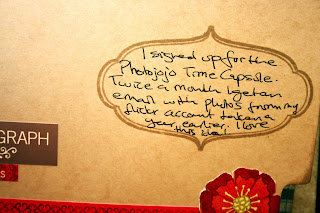 I signed up for the
Photojojo Time Capsule.
Twice a month I get an
email with photos from my
flickr account taken a
year earlier. I love
this idea!
GRAPH
S